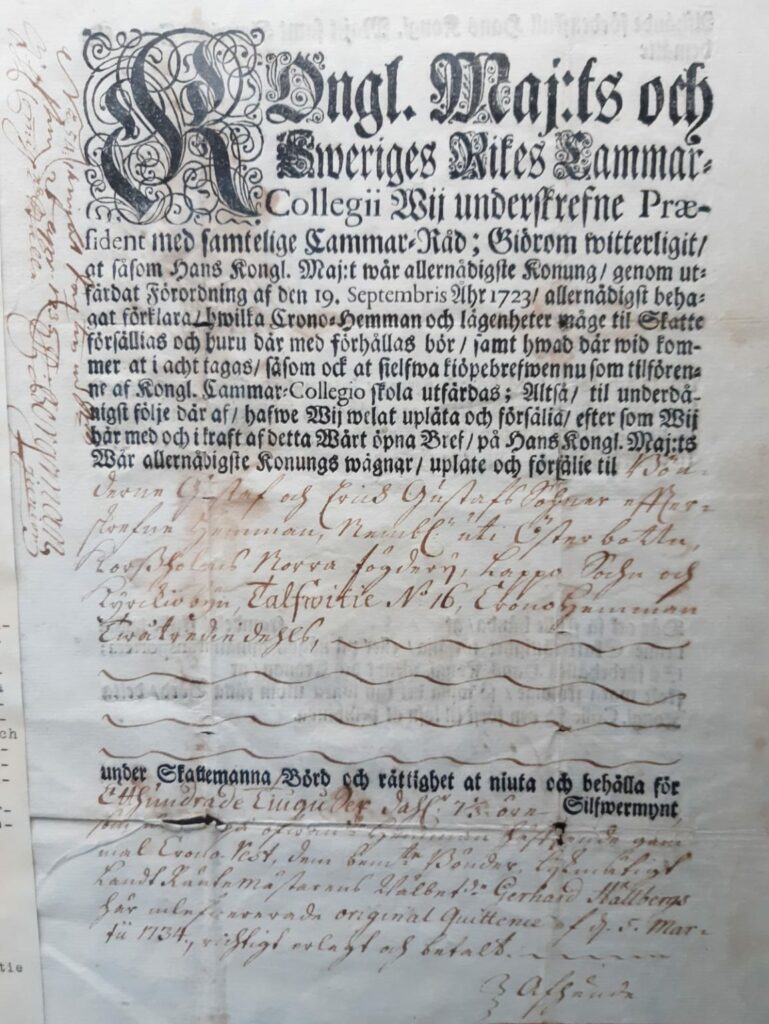 KOngl. Maj:ts och
Sweriges Rikes Cammar-
Collegii Wij underskrefne Præ-
sident med samtelige Cammar-Råd; Giörom witterligit/
at såsom Hans Kongl. Maj:t wår allernådigste Konung/ genom ut-
färdat Förordning af den 19. Septembris Åhr 1723/ allernådigst beha-
gat förklara/ hwilka Crono-Hemman och lägenheter måge til Skatte
försällias och huru där med förhållas bör/ samt hwad där wid kom-
mer at i acht tagas/ såsom ock at sielfwa kiöpebrefwen nu som tilfören-
ne af Kongl. Cammar-Collegio skola utfärdas; Altså/ til underdå-
nigst följe där af/ hafwe Wij welat uplåta och försälia/ efter som Wij
här med och i kraft af detta Wårt öpna Bref/ på Hans Kongl. Maj:ts
Wår allernådigste Konungs wägnar/ uplåte och försälie til Bön-
derne Gustaf och Erich Gustafs Söhner effter-
skrefne Hemman, Nembl. uti Österbottn,
Korssholms Norra fögdery, Lappo Sochn och
Kyrckio byn, Talfwitie No 16, Crono Hemman
Twåtrediedehls,
under Skattemanna/Börd och rättighet at niuta och behålla för
Etthundrade Tiugu Sex dahl. 7 öre Silfwermynt
Hemman gam-
mal Crono Rest, dem bemte Bönder,
Landt Räntemästarens Wälbet. Gerhard Hållbergs
här original Quittence af d. 5. Mar-
tii 1734, richtigt erlagt och betalt.
Afhände
Bergman